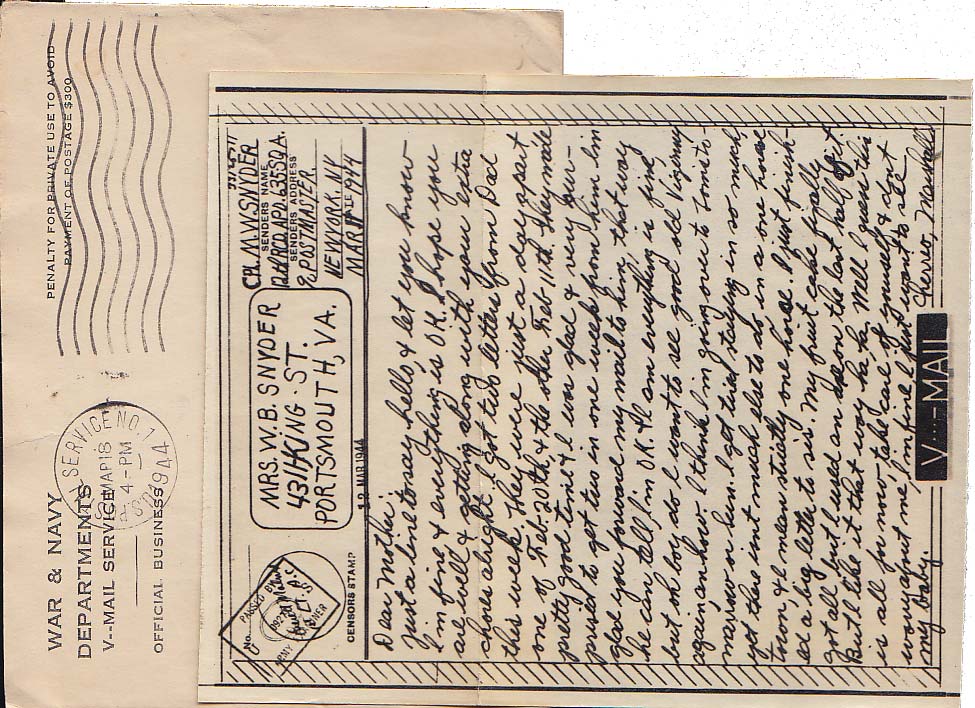 WAR & NAVY
DEPARTMENTS
V--MAIL SERVICE
OFFICIAL BUSINESS
PENALTY FOR PRIVATE USE TO AVOID
PAYMENT OF POSTAGE $300
SERVICE NO. 1
MAR 18
4-PM
1944
No.
PASSED BY
ARMY EXAMINER
CENSORS STAMP
MRS. W. B. SNYDER
431 KING ST.
PORTSMOUTH, VA.
12 MAR 1944
CPL M.W. SNYDER
SENDERS NAME
SENDERS ADDRESS
% POSTMASTER,
NEW YORK. NY
MAR DATE 1944
Dear Mother:
Just a line to say hello & let you know
I'm fine & everything is O.K. I hope you
are well & getting along with your extra
chores alright. I got two letters from Dad
this week. They were just a day apart
one of Feb. 20th, & the other Feb 11th. They made
pretty good time & I was glad & very sur-
prised to get two in one week from him. I'm
glad you forward my mail to him, that way
he can tell I'm OK. Yes ma'm everything is fine,
but oh boy do I want to see good old Virginny
again, anhow. I think I'm going over to town to-
morrow on Sun. I get tired staying in so much,
yet there isnt much else to do in a one horse
town, & I mean actually one horse. I just finish-
ed a big letter to sis. My fruit cake finally
got all but used an on the last half of it.
But I like it that way ha, ha. Well I guess this
is all for now take care of yourself & dont
worry about me, I'm fine I just want to see
my baby. Cheerio, Marshall
V--MAIL